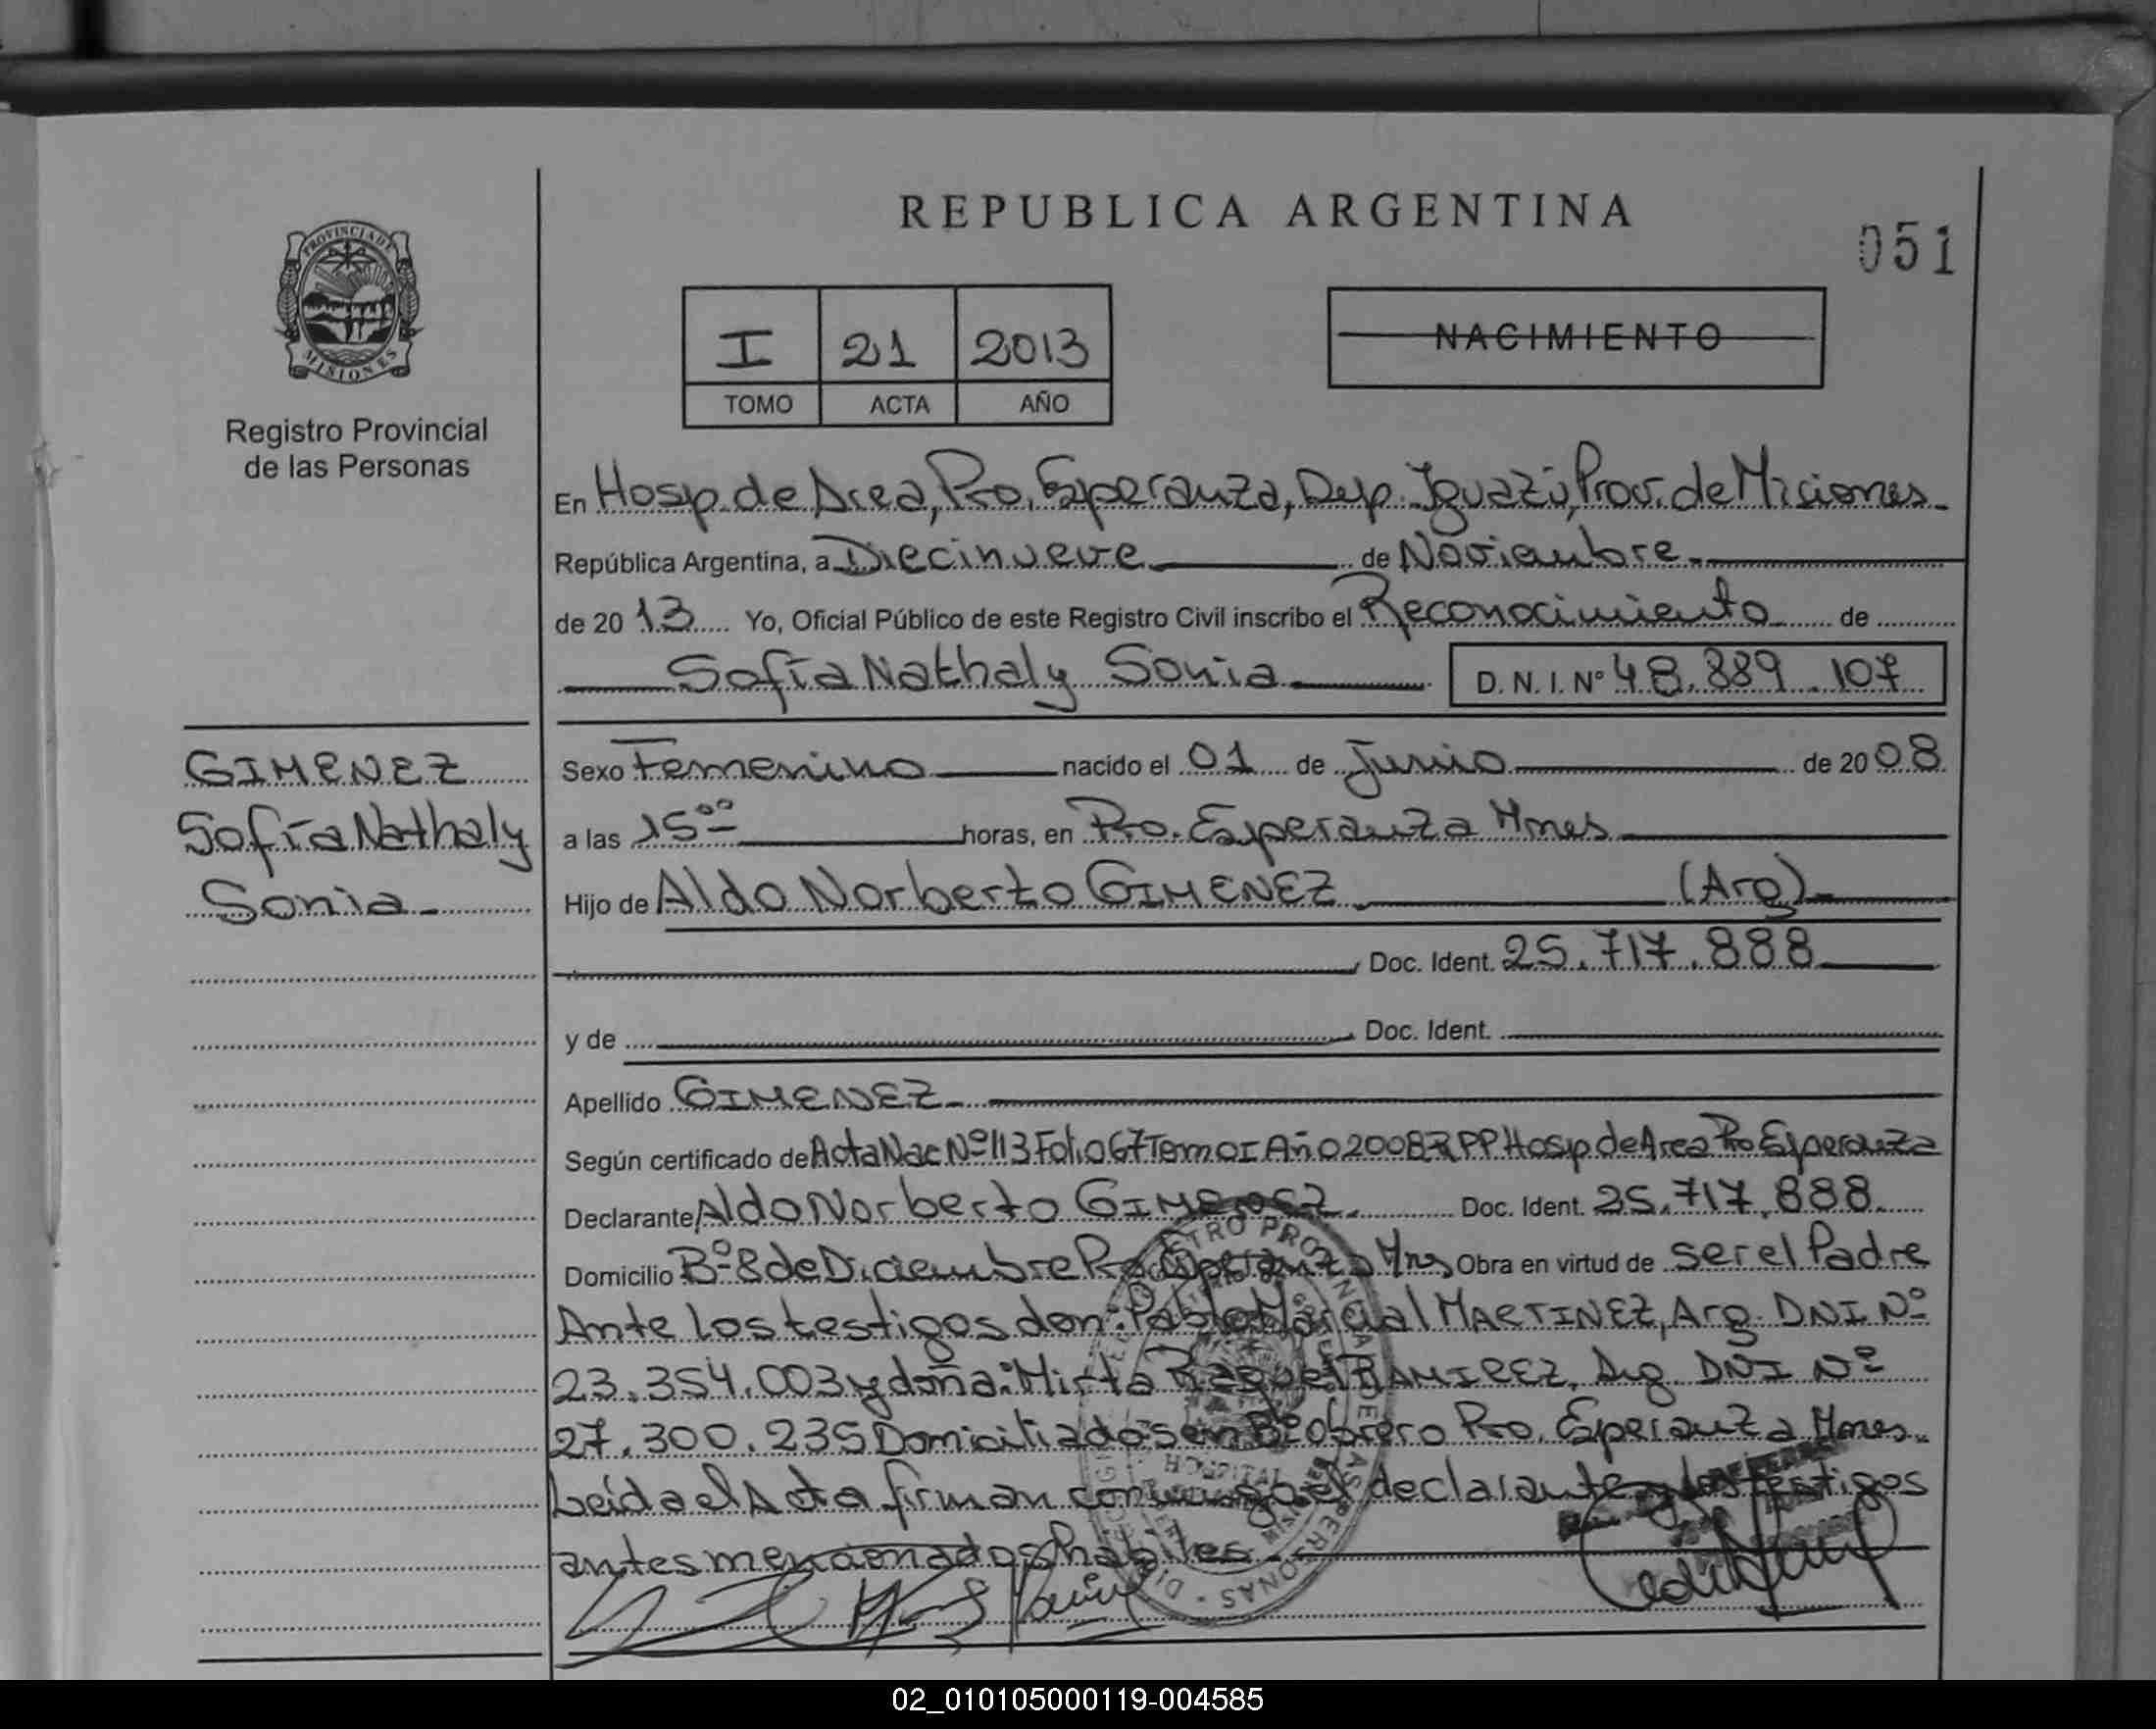 REPUBLICA ARGENTINA
051
PROVINCIA DE
MISIONES
Registro Provincial
de las Personas
I 21 2013
TOMO ACTA AÑO
NACIMIENTO
En Hosp. de Area, Pto. Esperanza, Dep. Iguazú, Prov. de Misiones
República Argentina, a Diecinueve de Noviembre
de 20 13 Yo, Oficial Público de este Registro Civil inscribo el Reconocimiento de
Sofía Nathaly Sonia D.N.I.Nº 48.889.107
GIMENEZ
Sofía Nathaly
Sonia
Sexo Femenino nacido el 01 de Junio de 20 08
a las 15ºº horas, en Pto. Esperanza Mnes
Hijo de Aldo Norberto GIMENEZ (Arg)
Doc. Ident. 25.717.888
y de Doc. Ident.
Apellido GIMENEZ
Según certificado de Acta Nac Nº 113 Folio 67 Tomo I Año 2008 RPP Hosp de Area Pto Esperanza
Declarante Aldo Norberto GIMENEZ. Doc. Ident. 25.717.888.
Domicilio Bº 8 de Diciembre Pto Esperanza Mnes Obra en virtud de ser el Padre
Ante los testigos don: Pablo Marcial MARTINEZ, Arg. DNI Nº
23.354.003 y doña: Mirta Raquel RAMIREZ, Arg. DNI Nº
27.300.235 Domiciliados en Bº Obrero Pto. Esperanza Mnes.
Leída el Acta firman conmigo el declarante y los testigos
antes mencionados habiles
02_010105000119-004585